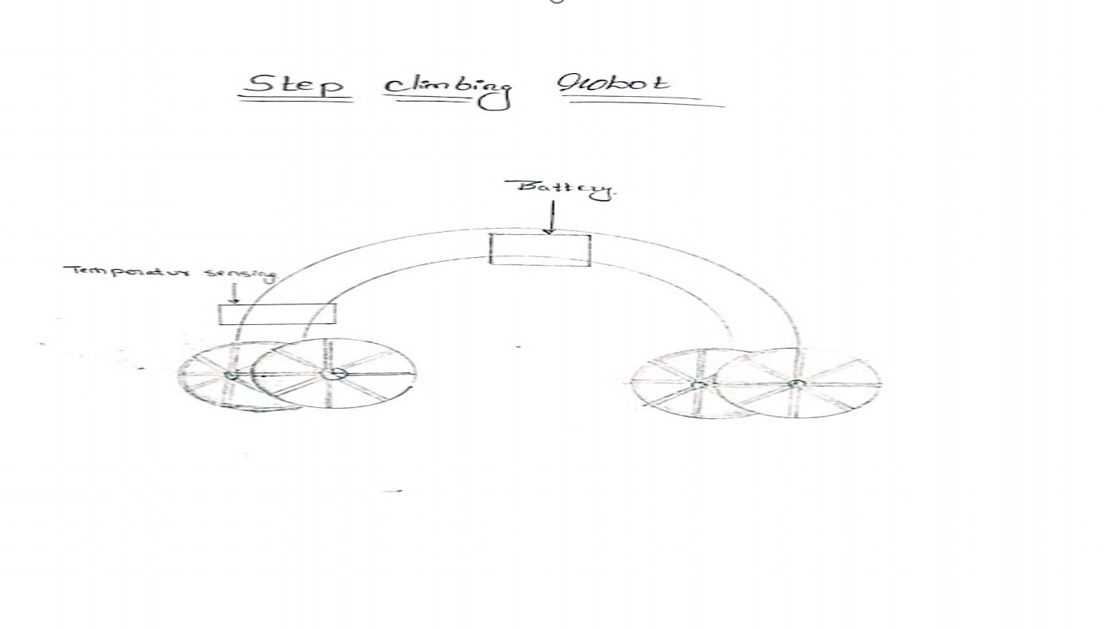 Step climbing Robot
Battery.
Temperatur sensing